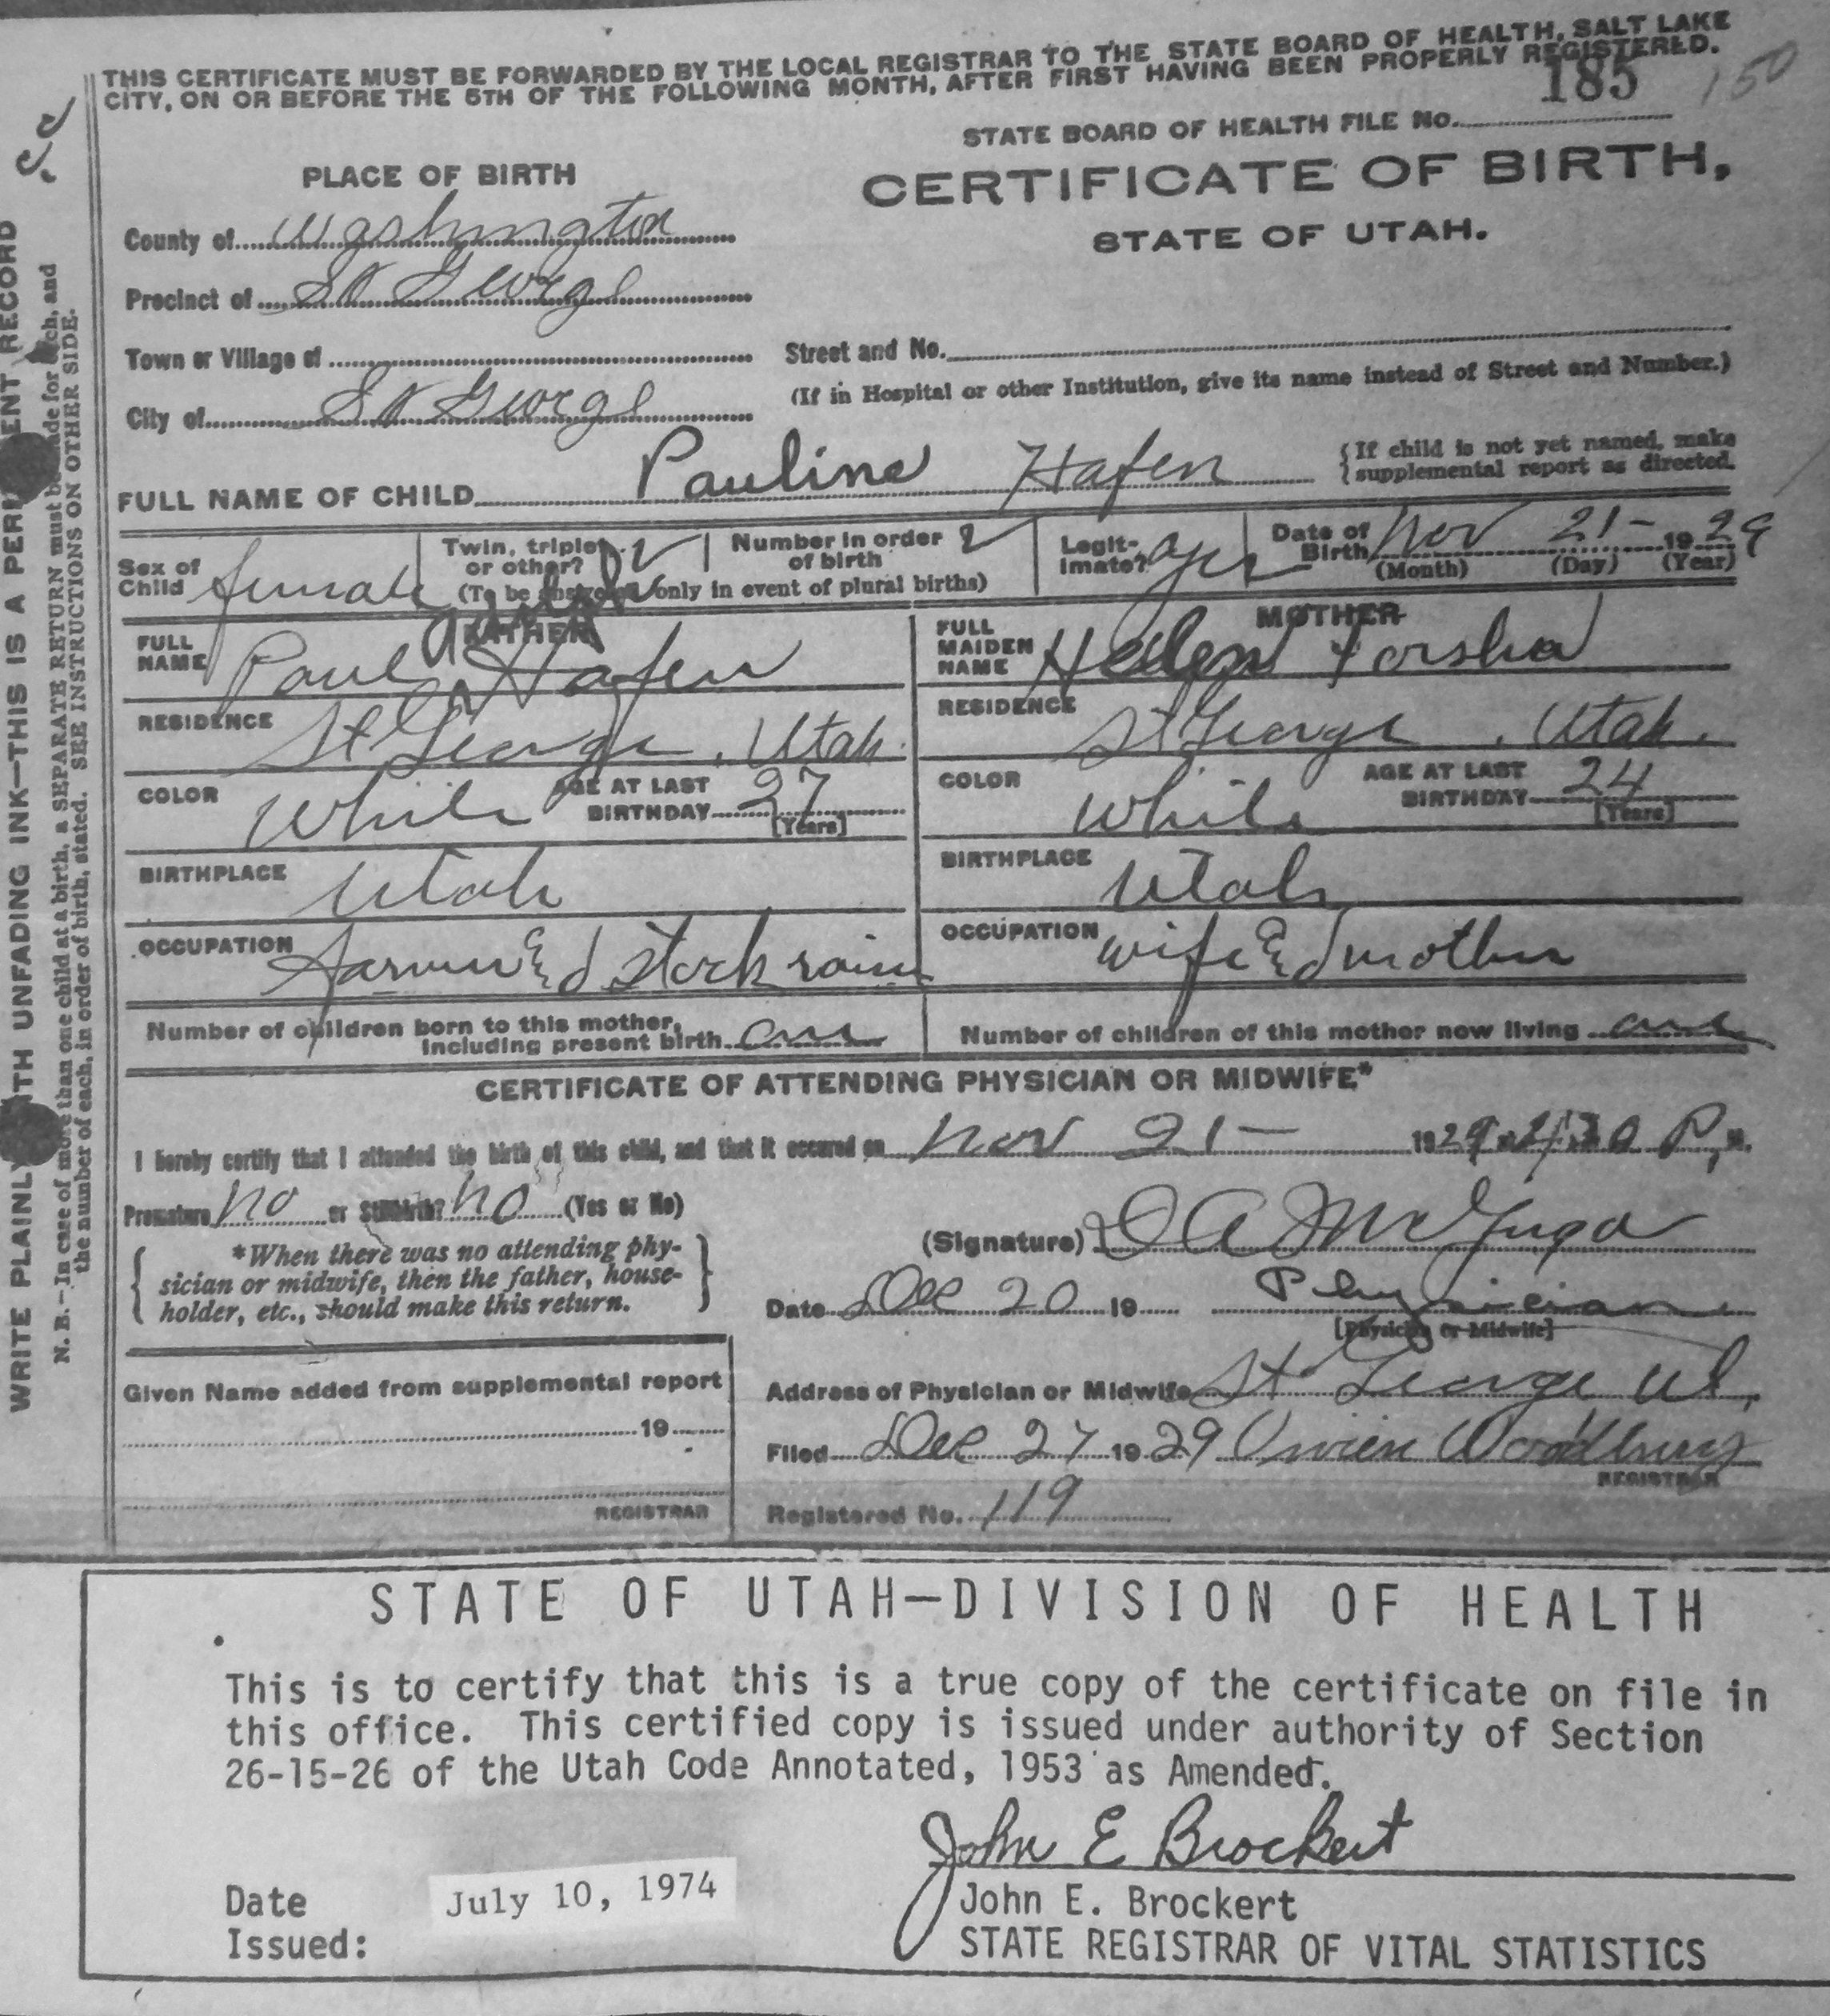 THIS CERTIFICATE MUST BE FORWARDED BY THE LOCAL REGISTRAR TO THE STATE BOARD OF HEALTH, SALT LAKE
CITY, ON OR BEFORE THE 5TH OF THE FOLLOWING MONTH, AFTER FIRST HAVING BEEN PROPERLY REGISTERED.
185 150
STATE BOARD OF HEALTH FILE No.
PLACE OF BIRTH
CERTIFICATE OF BIRTH,
STATE OF UTAH.
County of Washington
Precinct of St George
Town or Village of
Street and No.
(If in Hospital or other Institution, give its name instead of Street and Number.)
City of St George
FULL NAME OF CHILD Pauline Hafen
{If child is not yet named, make
supplemental report as directed.
Sex of Child female
Twin, triplet or other?
Number in order of birth
(To be answered only in event of plural births)
Legit-imate? yes
Date of Birth Nov 21- 1929
(Month) (Day) (Year)
FATHER
FULL NAME Paul Hafen
MOTHER
FULL MAIDEN NAME Helen Forsha
RESIDENCE St George, Utah.
RESIDENCE St George, Utah.
COLOR White AGE AT LAST BIRTHDAY 27 [Years]
COLOR White AGE AT LAST BIRTHDAY 24 [Years]
BIRTHPLACE Utah
BIRTHPLACE Utah
OCCUPATION Farmer & stock
OCCUPATION wife & mother
Number of children born to this mother, including present birth one
Number of children of this mother now living one
CERTIFICATE OF ATTENDING PHYSICIAN OR MIDWIFE*
I hereby certify that I attended the birth of this child, and that it occured on Nov 21- 1929 P. M.
Premature no or Stillbirth? no (Yes or No)
{ *When there was no attending phy-
sician or midwife, then the father, house-
holder, etc., should make this return. }
(Signature) A Mc
Date Dec 20 19 Physician
[Physician or Midwife]
Given Name added from supplemental report
19
REGISTRAR
Address of Physician or Midwife St George Ut,
Filed Dec 27 1929 Vivien Woodbury
REGISTRAR
Registered No. 119
WRITE PLAINLY WITH UNFADING INK—THIS IS A PERMANENT RECORD
N. B.—In case of more than one child at a birth, a SEPARATE RETURN must be made for each, and
the number of each, in order of birth, stated. SEE INSTRUCTIONS ON OTHER SIDE.
STATE OF UTAH—DIVISION OF HEALTH
This is to certify that this is a true copy of the certificate on file in
this office. This certified copy is issued under authority of Section
26-15-26 of the Utah Code Annotated, 1953 as Amended.
John E Brockert
Date Issued: July 10, 1974
John E. Brockert
STATE REGISTRAR OF VITAL STATISTICS